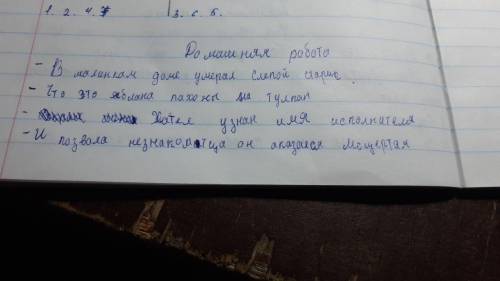 1. 2. 4. 7
3. 6. 5.
Домашняя робото
- В малинкам доме умерал слепой старис.
- Что это яблана пахожы на тулпан
- Хател узнан имя исполнителя
- И позвола незнакомтца он аказался Моцертая